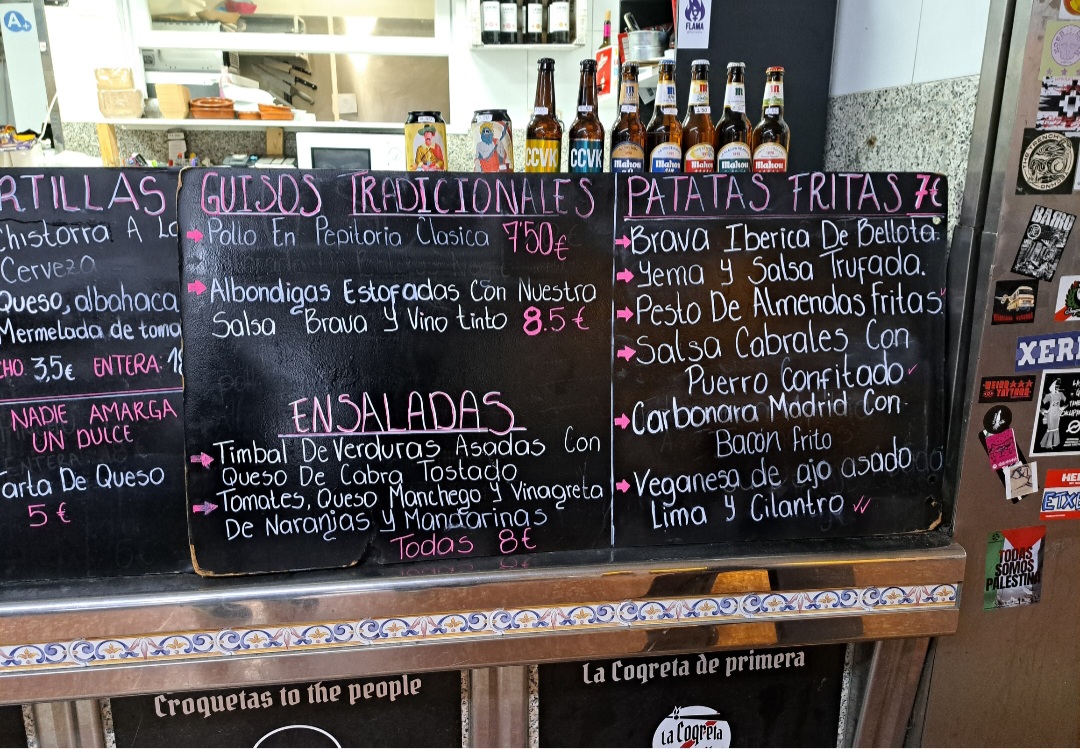 A+
FLAMA
CCVK
CCVK
Mahou
Mahou
Mahou
Mahou
Mahou
RTILLAS
Chistorra A La
Cerveza
Queso, albahaca
Mermelada de toma
CHO: 3,5€ ENTERA: 1
NADIE AMARGA
UN DULCE
Tarta De Queso
5€
GUISOS TRADICIONALES
Pollo En Pepitoria Clasica 7'50€
Albondigas Estofadas Con Nuestra
Salsa Brava Y Vino tinto 8.5€
ENSALADAS
Timbal De Verduras Asadas Con
Queso De Cabra Tostado
Tomates, Queso Manchego Y Vinagreta
De Naranjas Y Mandarinas
Todas 8€
PATATAS FRITAS 7€
Brava Iberica De Bellota.
Yema Y Salsa Trufada.
Pesto De Almendas Fritas
Salsa Cabrales Con
Puerro Confitado
Carbonara Madrid Con
Bacon Frito
Veganesa de ajo asado
Lima Y Cilantro
BARÓN
XERE
TATTOO
ETXE
TODAS
SOMOS
PALESTINA
Croquetas to the people
La Coqreta de primera
La Coqreta